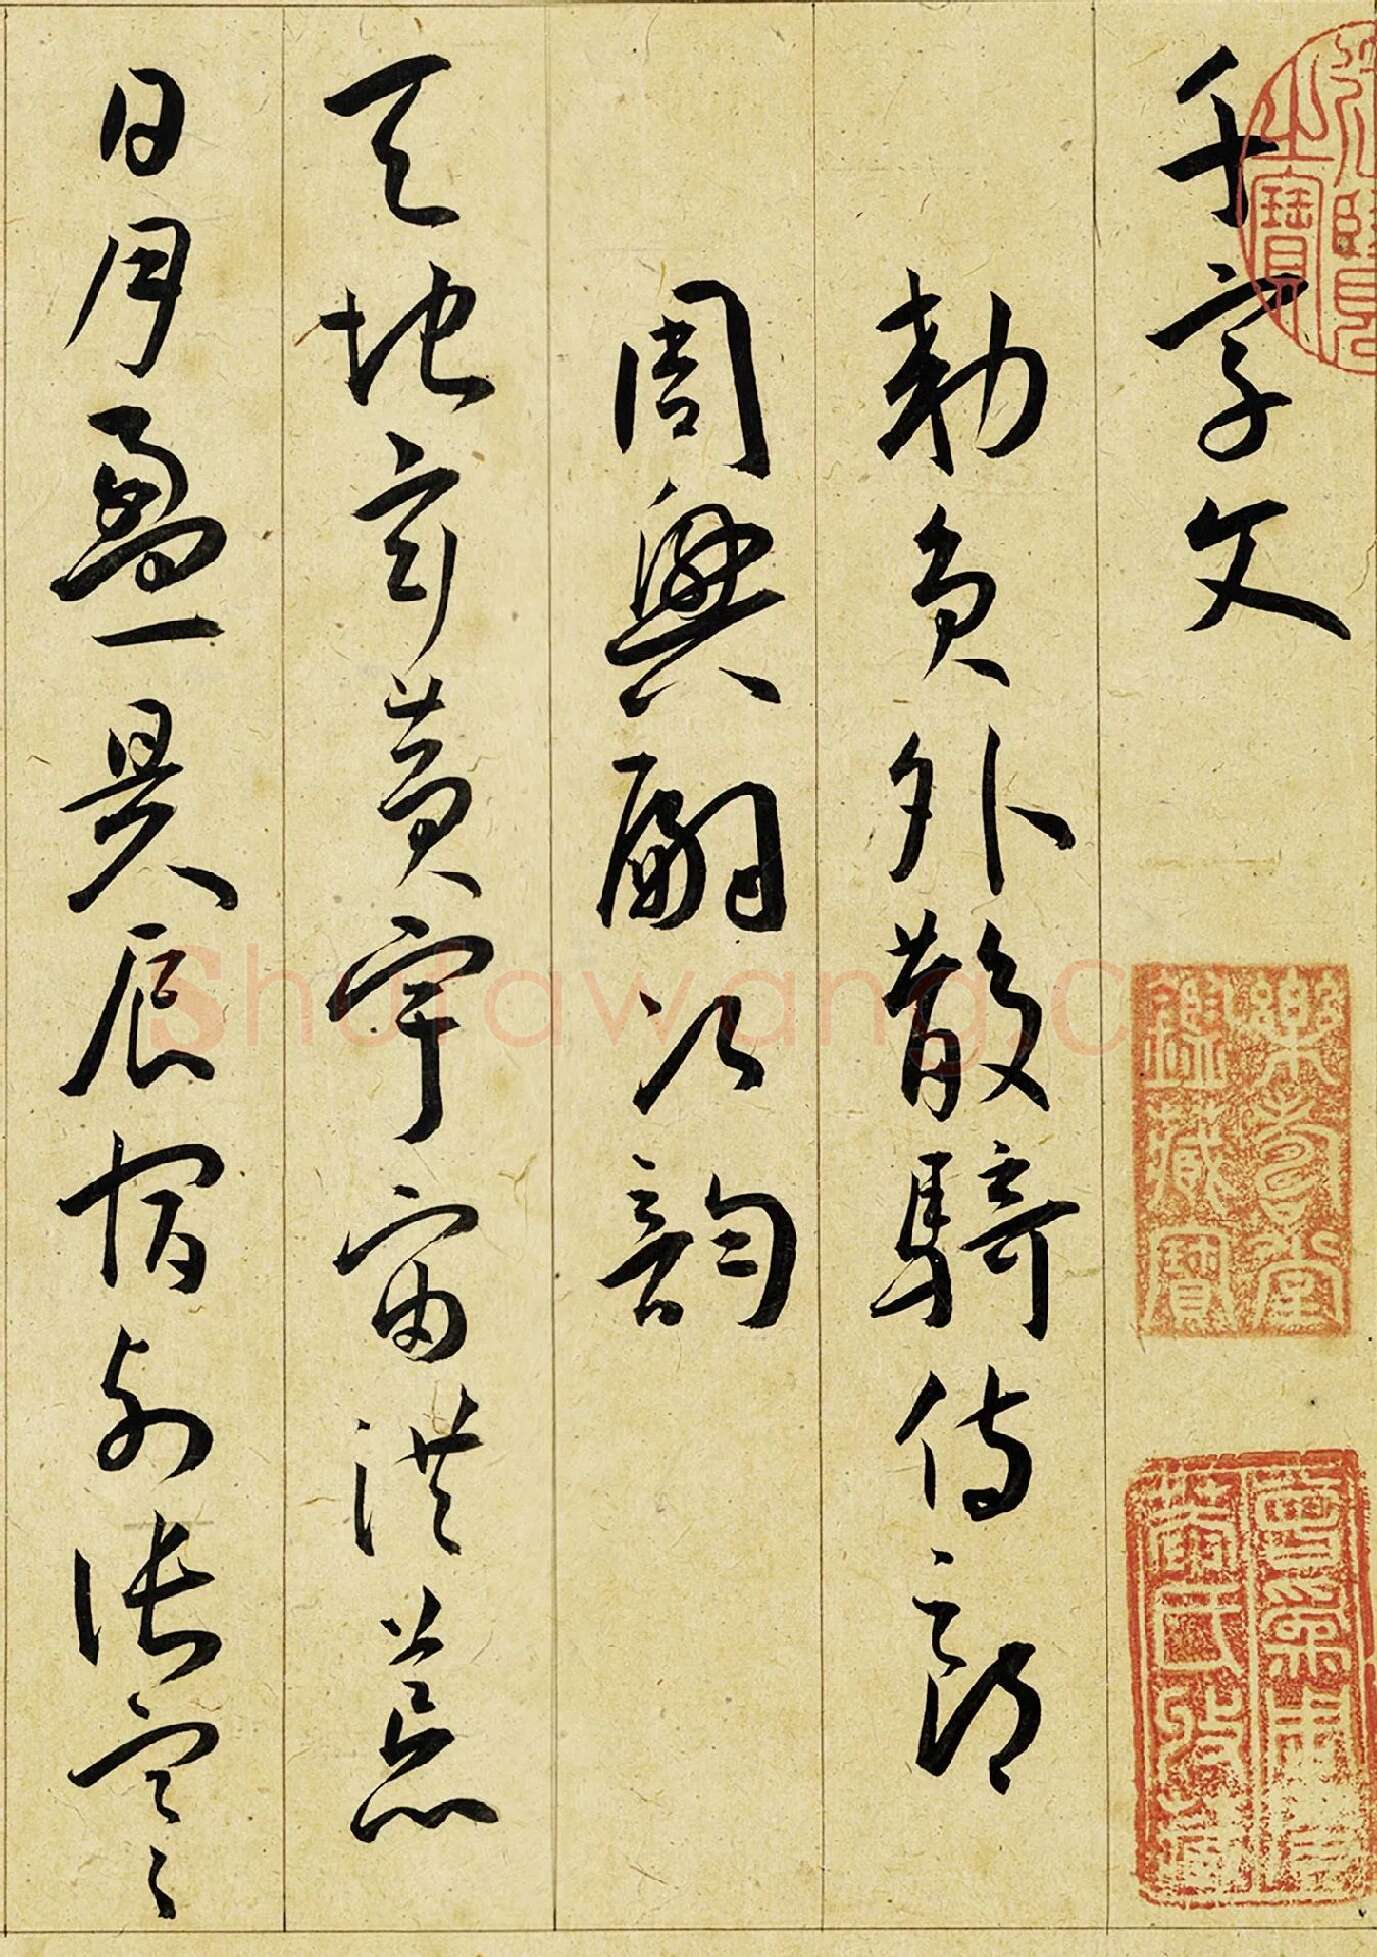 千字文
勅員外散騎侍郎
周興嗣次韻
天地玄黄宇宙洪荒
日月盈昃辰宿列張寒
樂壽堂鑑藏寶
shufawang.c